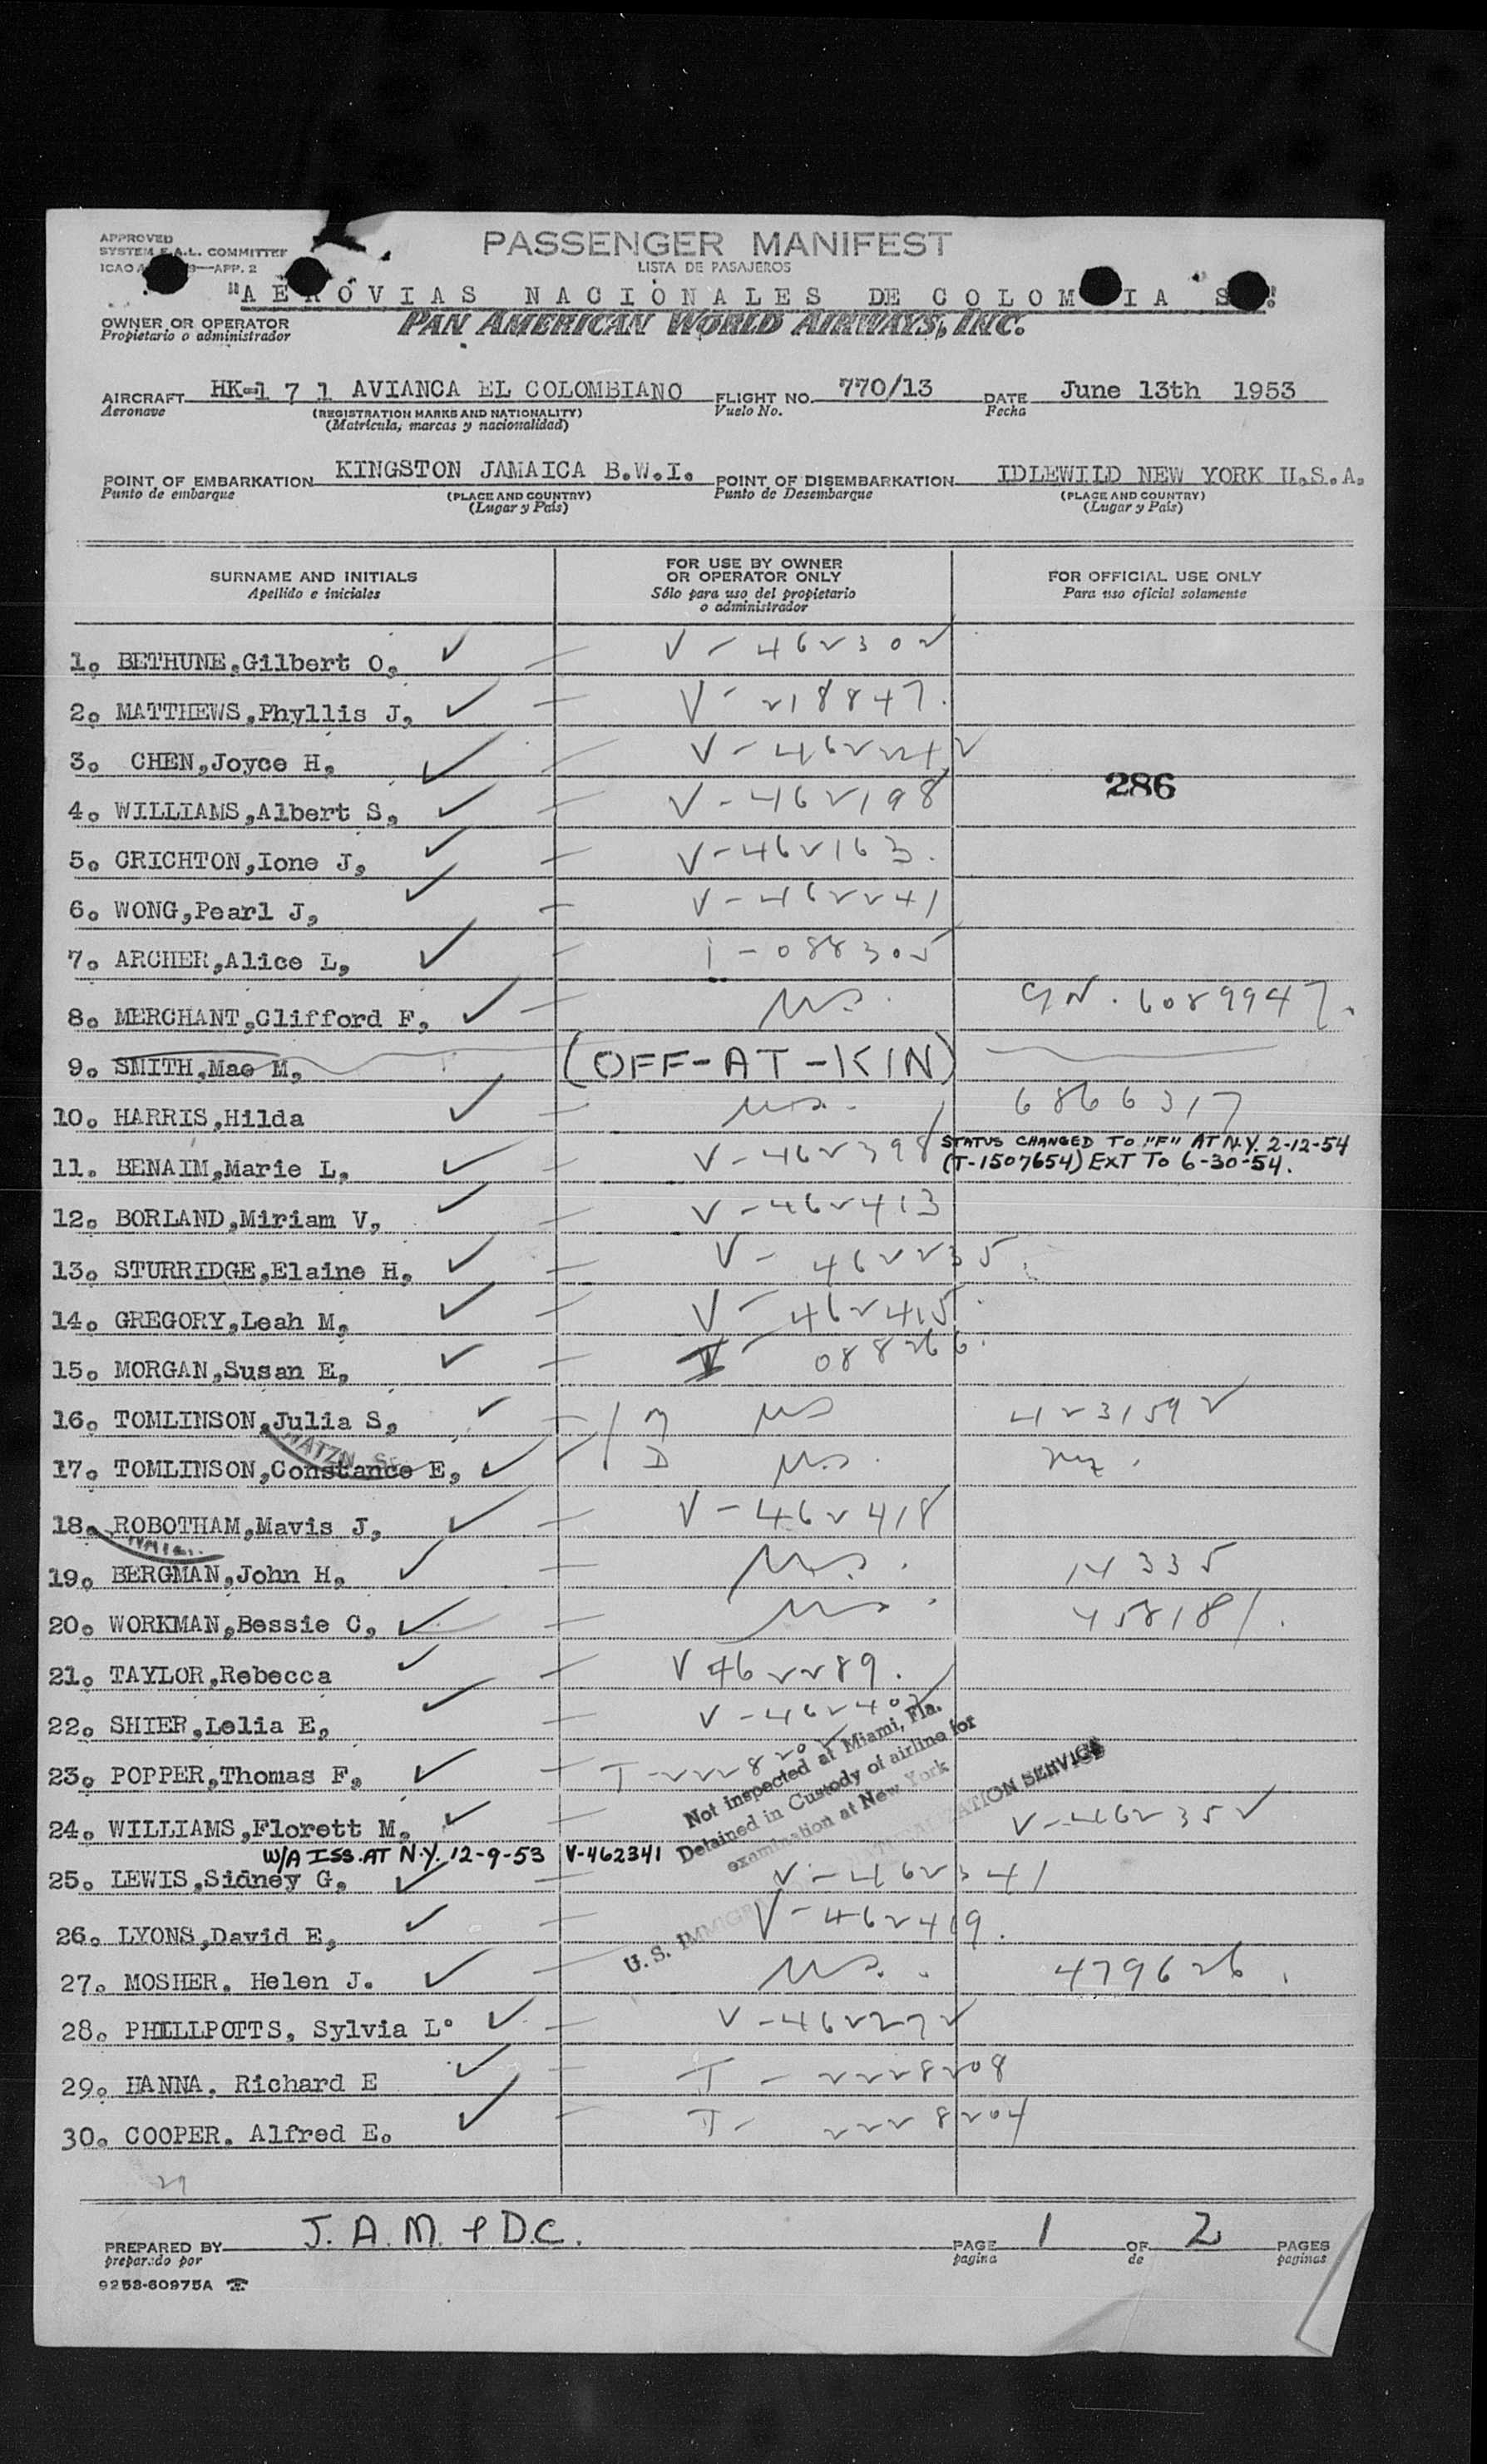 APPROVED
SYSTEM F.A.L. COMMITTEE
ICAO —APP. 2
PASSENGER MANIFEST
LISTA DE PASAJEROS
"AEROVIAS NACIONALES DE COLOMBIA
OWNER OR OPERATOR
Propietario o administrador
PAN AMERICAN WORLD AIRWAYS, INC.
AIRCRAFT HK-1 7 1 AVIANCA EL COLOMBIANO FLIGHT NO. 770/13 DATE June 13th 1953
Aeronave (REGISTRATION MARKS AND NATIONALITY) Vuelo No. Fecha
(Matrícula, marcas y nacionalidad)
POINT OF EMBARKATION KINGSTON JAMAICA B.W.I. POINT OF DISEMBARKATION IDLEWILD NEW YORK U.S.A.
Punto de embarque (PLACE AND COUNTRY) Punto de Desembarque (PLACE AND COUNTRY)
(Lugar y País) (Lugar y País)
SURNAME AND INITIALS FOR USE BY OWNER OR OPERATOR ONLY FOR OFFICIAL USE ONLY
Apellido e iniciales Sólo para uso del propietario o administrador Para uso oficial solamente
1. BETHUNE,Gilbert O, V-462302
2. MATTHEWS,Phyllis J, V-218847.
3. CHEN,Joyce H, V-462242
286
4. WILLIAMS,Albert S, V-462198
5. CRICHTON,Ione J, V-462163.
6. WONG,Pearl J, V-462241
7. ARCHER,Alice L, I-088305
8. MERCHANT,Clifford F, U.S. 6089947.
9. SMITH,Mae M, (OFF-AT-KIN)
10. HARRIS,Hilda U.S. 6866317
11. BENAIM,Marie L, V-462398 STATUS CHANGED TO "F" AT N.Y. 2-12-54
(T-1507654) EXT TO 6-30-54.
12. BORLAND,Miriam V, V-462413
13. STURRIDGE,Elaine H, V-462235.
14. GREGORY,Leah M, V-462415.
15. MORGAN,Susan E, I 088266.
16. TOMLINSON,Julia S, M US 4231592
17. TOMLINSON,Constance E, D U.S.
18. ROBOTHAM,Mavis J, V-462418
19. BERGMAN,John H, U.S. 14335
20. WORKMAN,Bessie C, U.S. 458181.
21. TAYLOR,Rebecca V 462289.
22. SHIER,Lelia E,
23. POPPER,Thomas F,
Not inspected at Miami, Fla.
Detained in Custody of airline for
examination at New York
24. WILLIAMS,Florett M, V-462352
W/A ISS. AT N.Y. 12-9-53 V-462341
25. LEWIS,Sidney G, V-462341
26. LYONS,David E, V-462419.
U.S. IMMIGRATION SERVICE
27. MOSHER. Helen J. U.S. 479626.
28. PHILLPOTTS, Sylvia L. V-462272
29. HANNA. Richard E I-2228208
30. COOPER. Alfred E. I-2228204
29
PREPARED BY J.A.M. & D.C. PAGE 1 OF 2 PAGES
preparado por pagina de paginas
9253-60975A